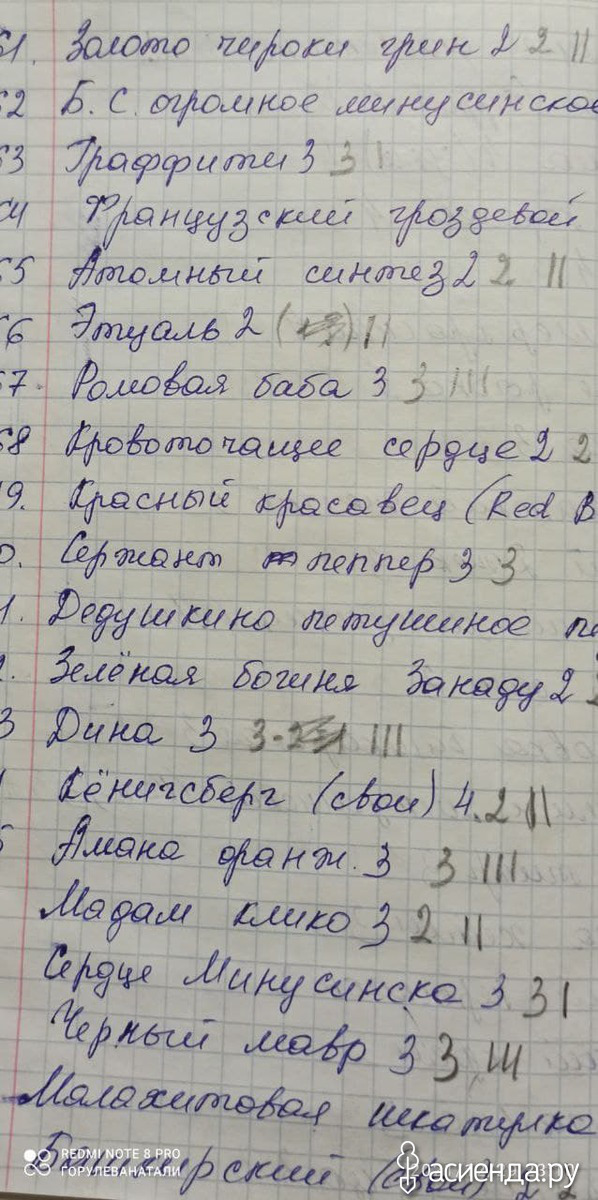 61. Золото чироки грин 2 2 ||
62 Б. С. огромное минусинское
63 Граффити 3 3 |
64 Французский гроздевой
65 Атомный синтез 2 2 ||
66 Этуаль 2 ( ) ||
67. Ромовая баба 3 3 |||
68 Кровоточащее сердце 2 2
9. Красный красавец (Red B
0. Сержант пеппер 3 3
1. Дедушкино петушиное
2. Зелёная богиня Занаду 2
3 Дина 3 3-2 |||
Кёнигсберг (свои) 4. 2 ||
5 Амана оранж. 3 3 |||
Мадам клико 3 2 ||
Сердце Минусинска 3 3 |
Черный мавр 3 3 |||
Малахитовая шкатулка
REDMI NOTE 8 PRO
ГОРУЛЕВАНАТАЛИ
асиенда.ру